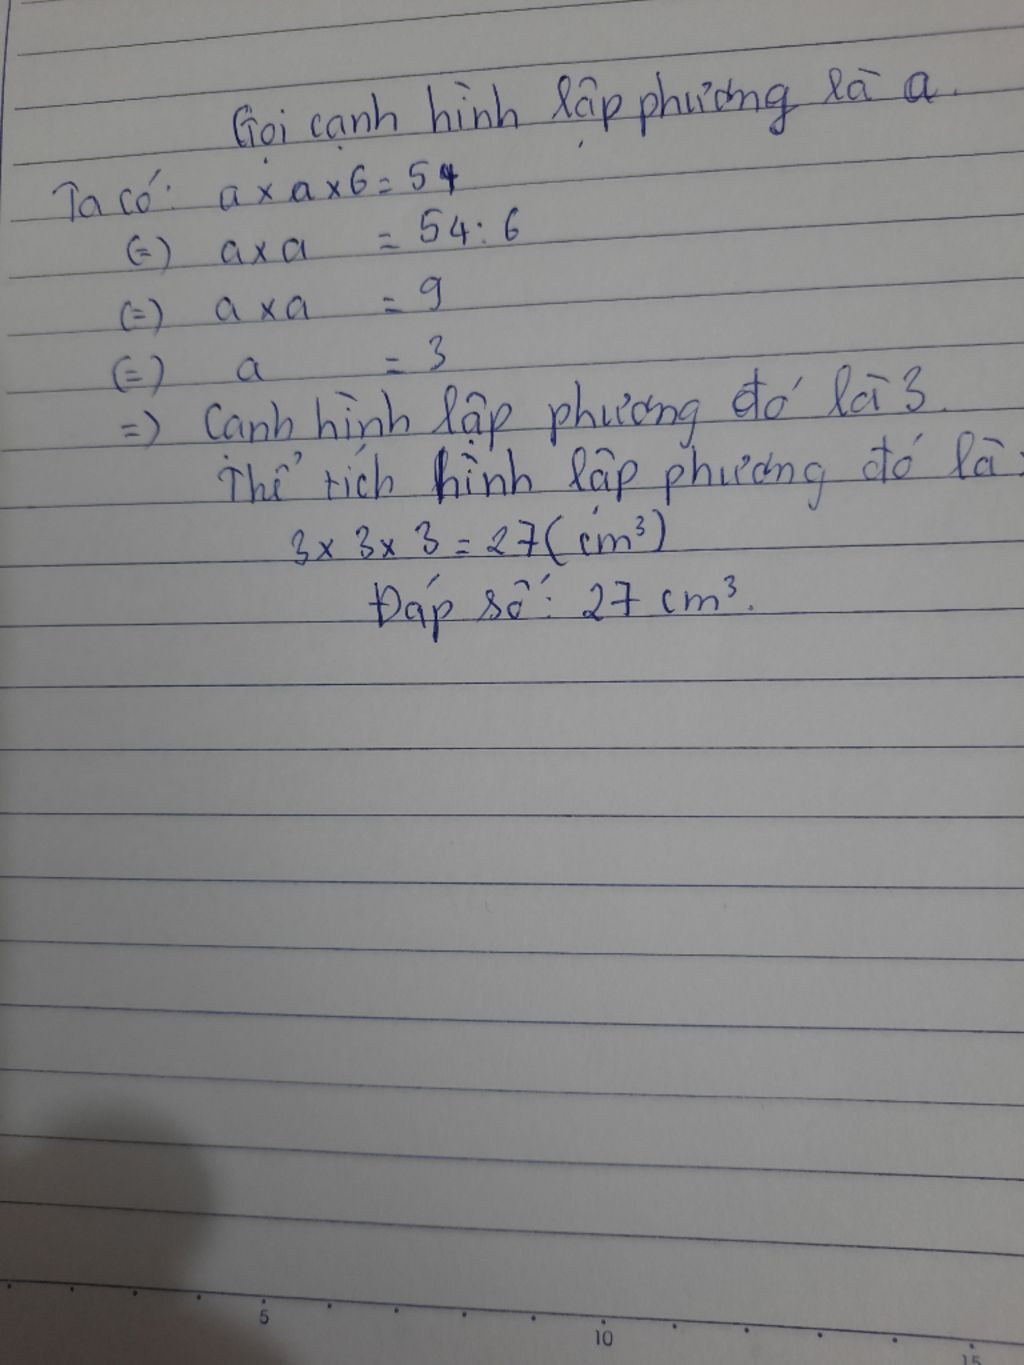 Gọi cạnh hình lập phương là a.
Ta có: a x a x 6 = 54
(=) a x a = 54 : 6
(=) a x a = 9
(=) a = 3
=) Cạnh hình lập phương đó là 3.
Thể tích hình lập phương đó là:
3 x 3 x 3 = 27 (cm³)
Đáp số: 27 cm³.
5 10 15